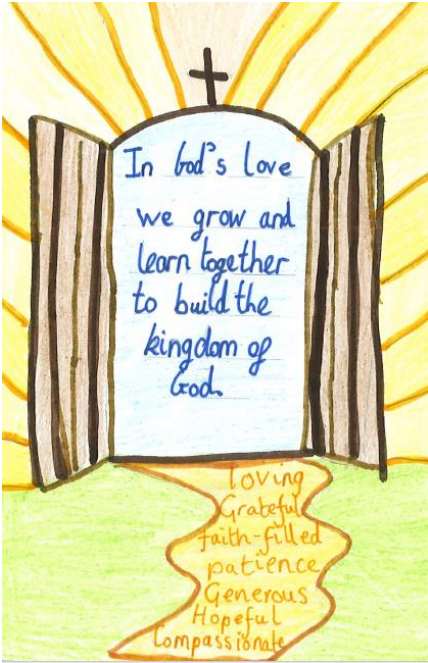 In God's love
we grow and
learn together
to build the
kingdom of
God.
loving
Grateful
faith-filled
patience
Generous
Hopeful
Compassionate